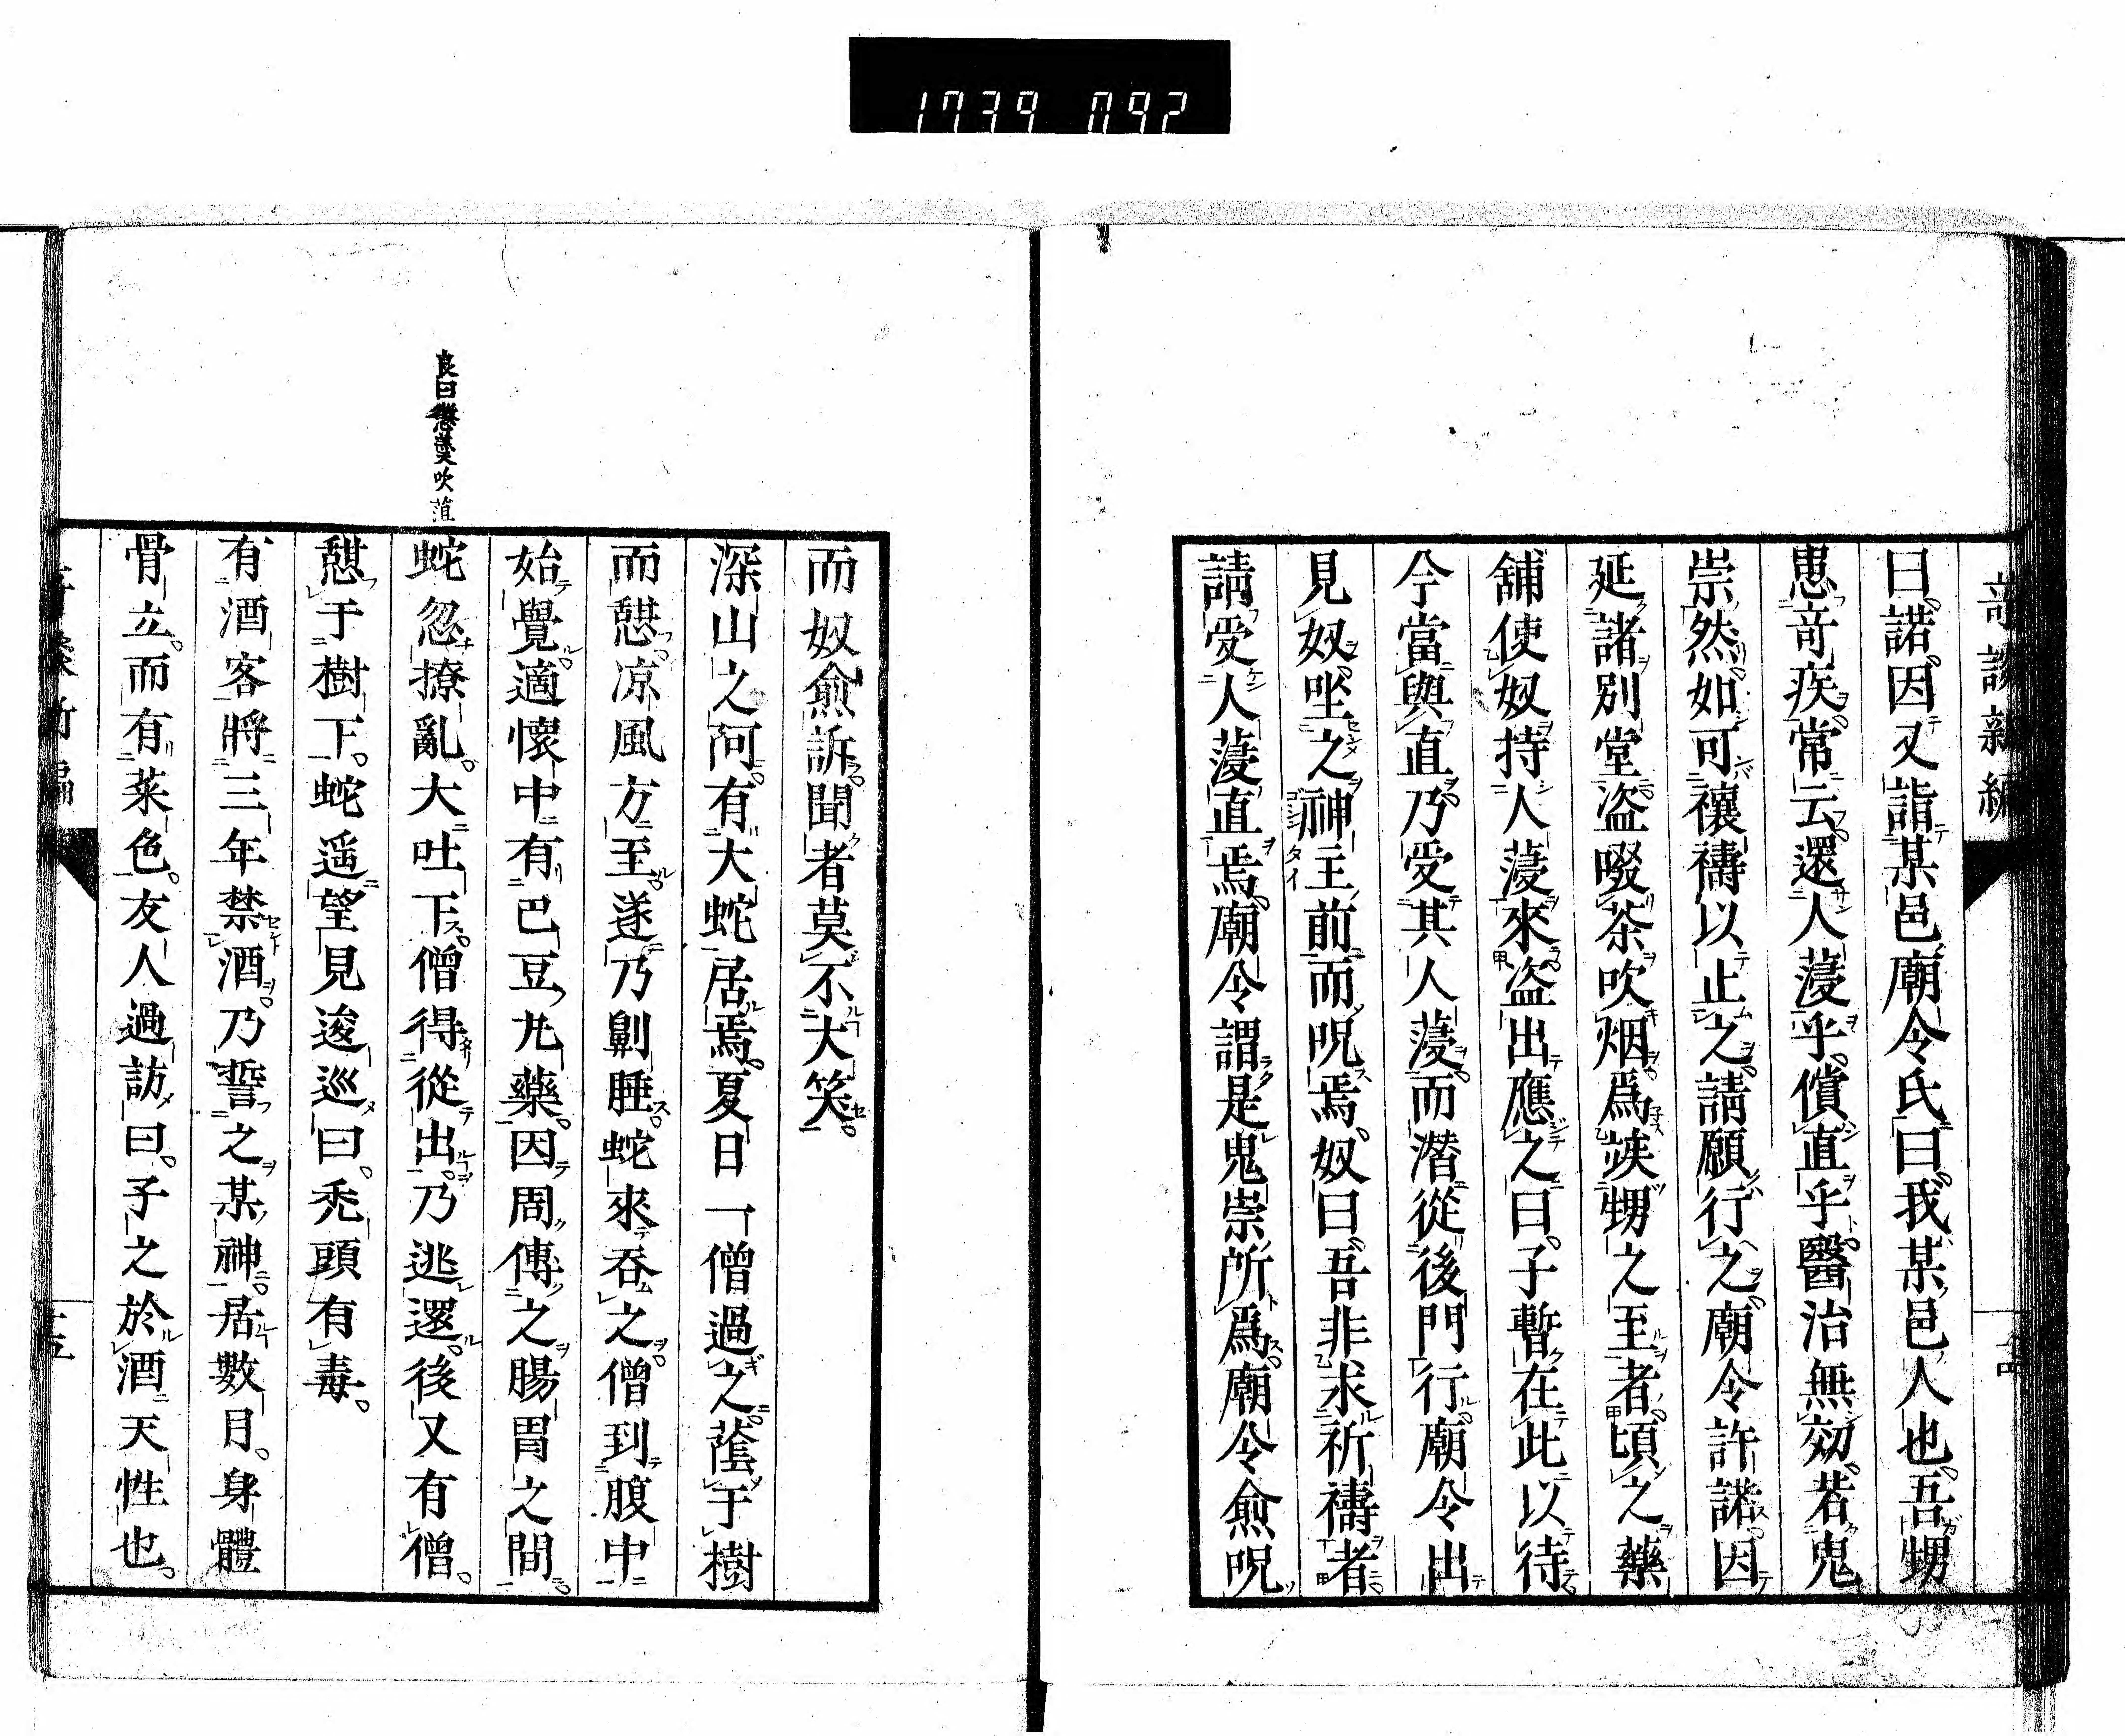 1739 092
奇談新編
曰。諾。因又詣某邑廟令氏曰。我某邑人也。吾甥
患竒疾。常云。還人薓乎。償直乎。醫治無効。若鬼
崇然。如可禳禱以止之。請願行之。廟令許諾。因
延諸別堂。盗啜茶吹烟。爲竢甥之至者。頃之藥
舖使奴持人薓來。盗出應之曰。子暫在此以待。
今當與直。乃受其人薓。而潜從後門行。廟令出
見奴。坐之神主前而呪焉。奴曰。吾非求祈禱者。
請受人薓直焉。廟令謂是鬼崇所爲。廟令愈呪
而奴愈訴。聞者莫不大笑。
深山之阿。有大蛇居焉。夏日一僧過之。蔭于樹
而憇。凉風方至。遂乃鼾睡。蛇來吞之。僧到腹中
始覺。適懷中有巴豆丸藥。因周傳之腸胃之間。
蛇忽撩亂。大吐下。僧得從出。乃逃還。後又有僧。
憇于樹下。蛇遥望見逡巡曰。禿頭有毒。
有酒客。將三年禁酒。乃誓之某神。居數日。身體
骨立。而有菜色。友人過訪曰。子之於酒天性也。
良曰懲羮吹